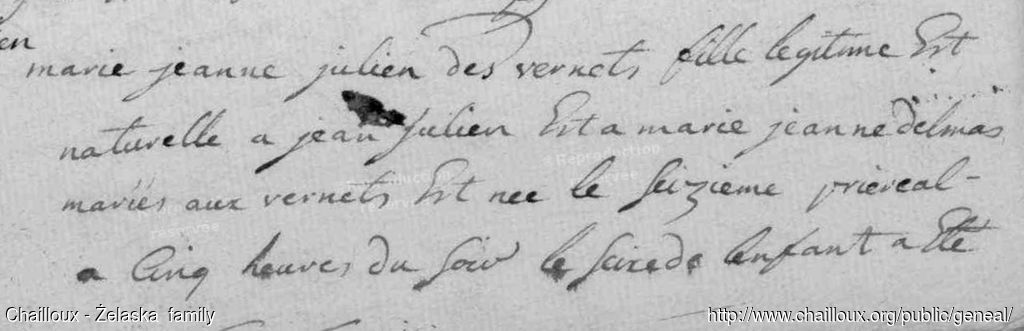 en
marie jeanne julien des vernets fille legitime Ert
naturelle a jean julien Ert a marie jeanne delmas
mariés aux vernets Ert nee le seizieme priereal-
a Cinq heures du soir le lenfant a Ete
Chailloux - Żelaska family
http://www.chailloux.org/public/geneal/